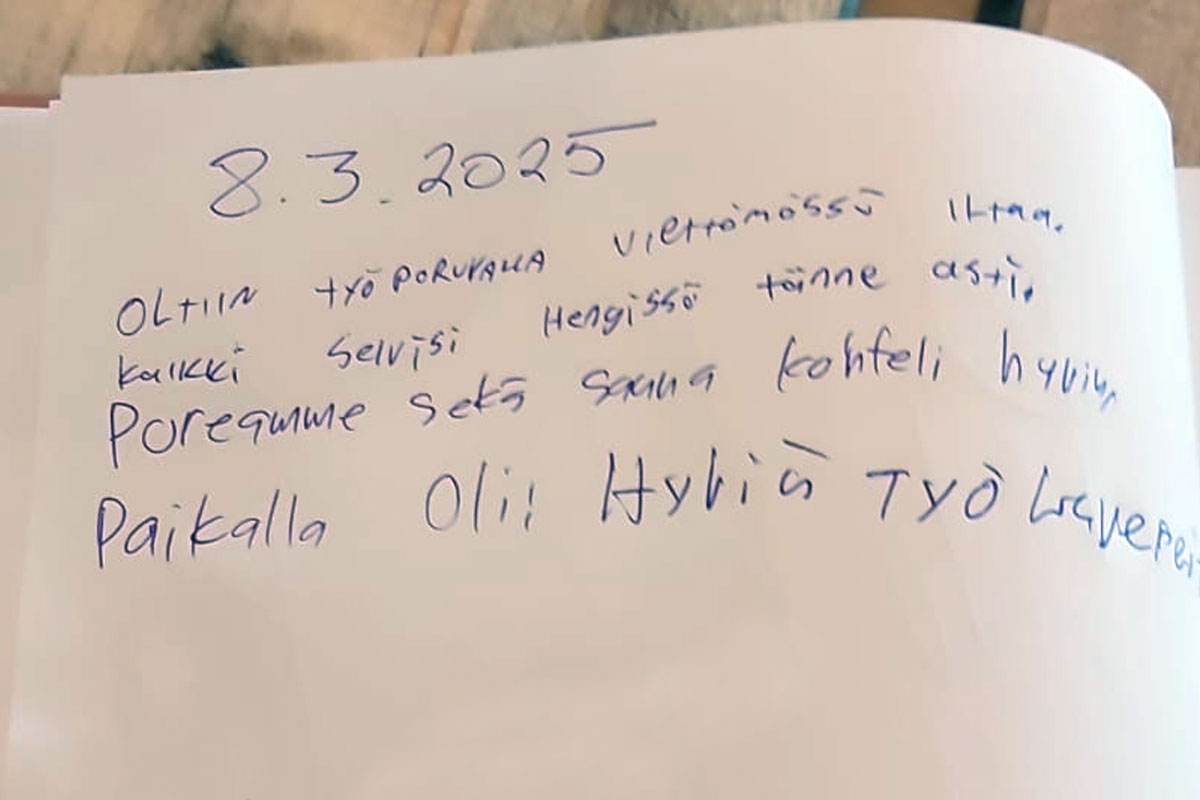 8.3.2025
OLTIIN TYÖPORUKALLA VIETTÄMÄSSÄ ILTAA.
KAIKKI SELVISI HENGISSÄ tänne asti.
Poreamme sekä sauna kohteli hyvin,
Paikalla Oli! Hyviä TYÖ kavereit